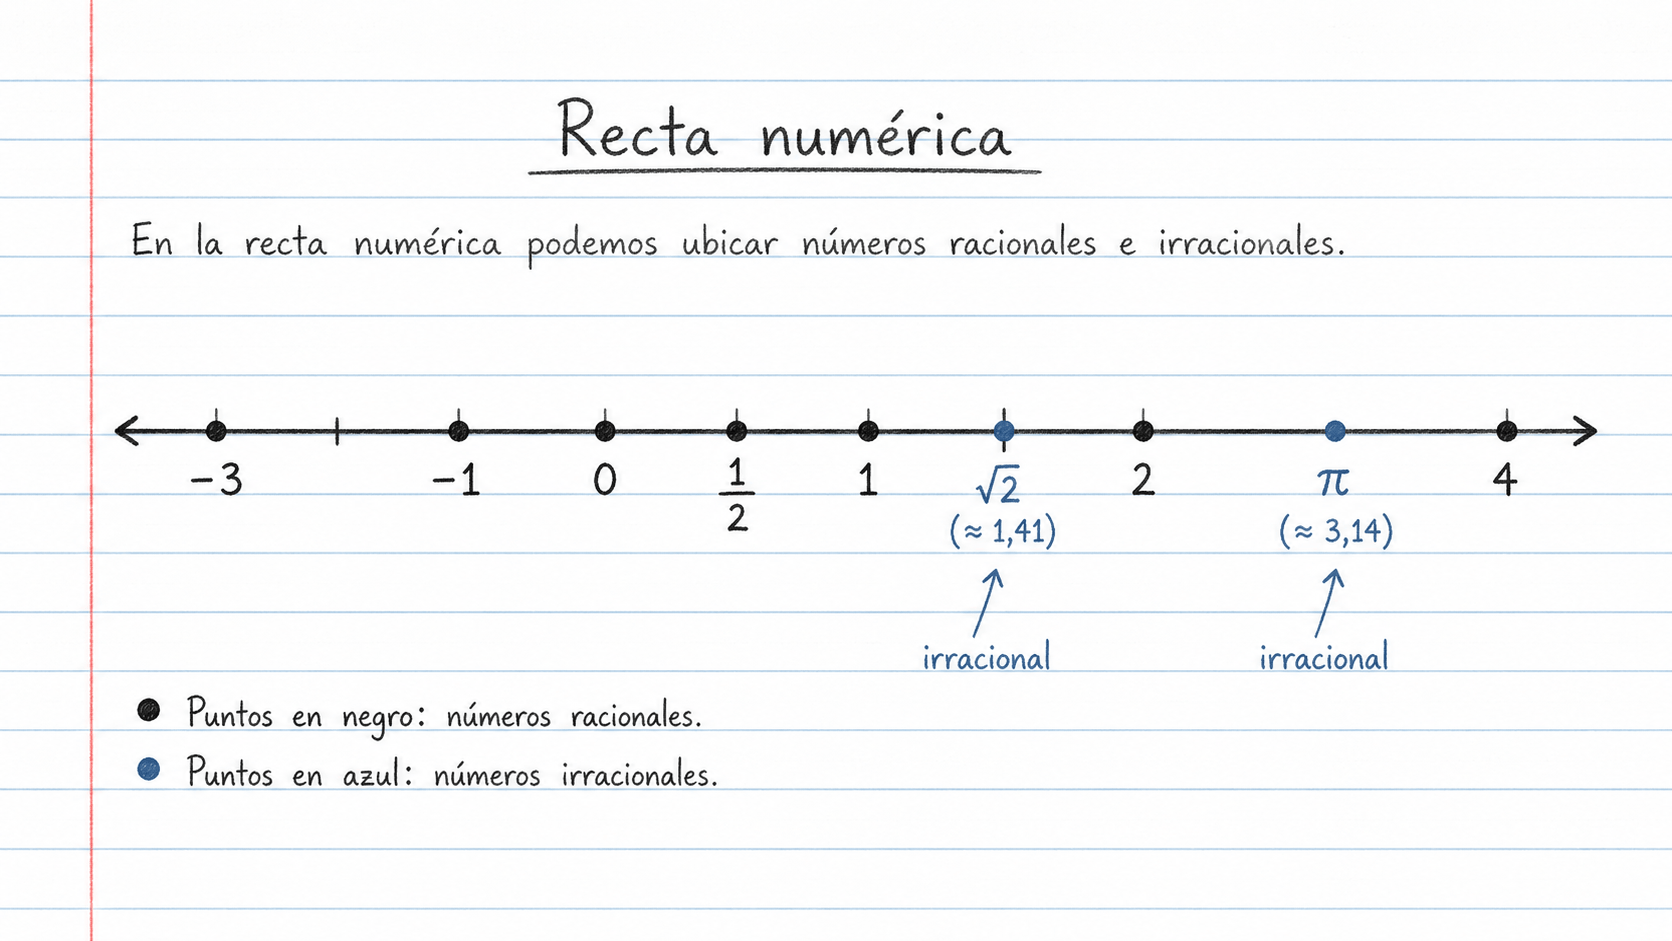 Recta numérica
En la recta numérica podemos ubicar números racionales e irracionales.
−3 −1 0 1/2 1 √2 2 π 4
(≈ 1,41) (≈ 3,14)
irracional irracional
Puntos en negro: números racionales.
Puntos en azul: números irracionales.